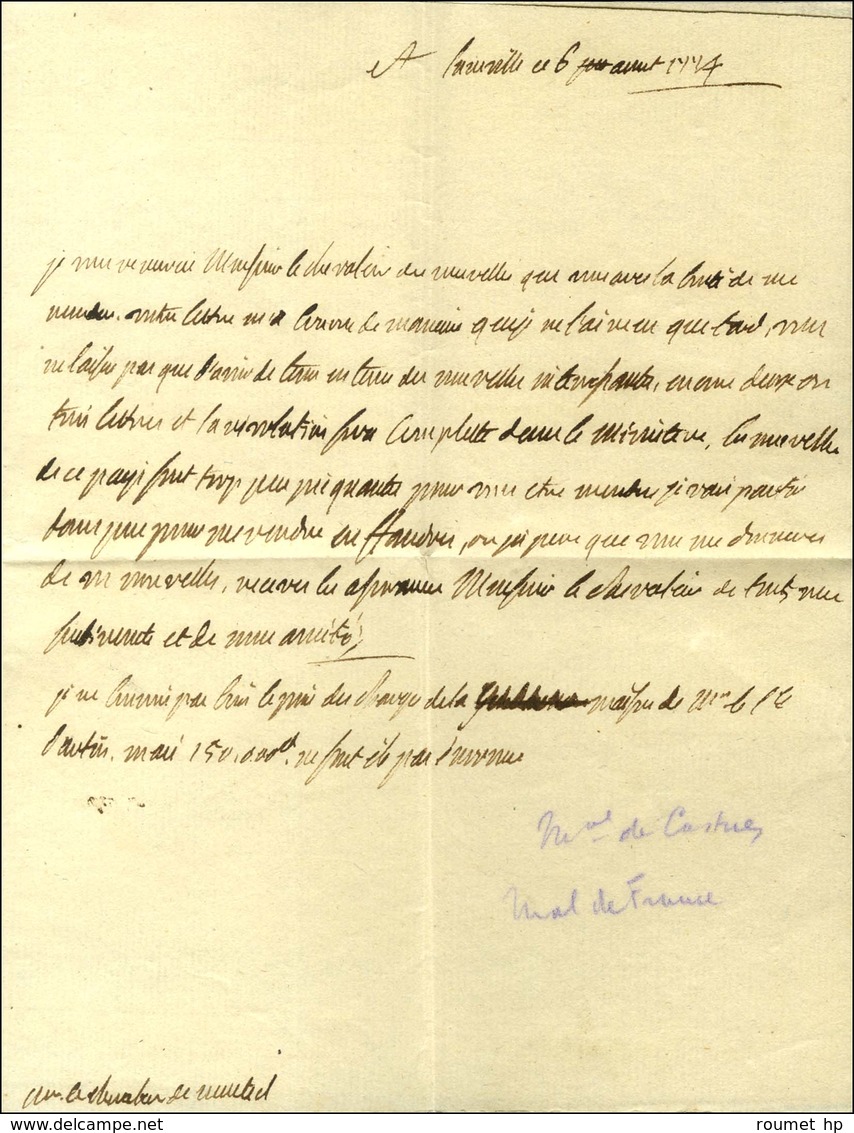 A Luneville ce 6 aout 1774
je vous remercie Monsieur le chevalier des nouvelles que vous aves la bonté de me
mander. votre lettre m'a de maniere que je ne l'ai recu que tard, vous
ne laissés pas que d'avoir de tems en tems des nouvelles interessantes, encore deux ou
trois lettres et la revolution sera complette dans le Ministere, les nouvelles
de ce pays sont trop peu piquantes pour vous etre mandés je vais partir
dans peu pour me rendre en flandres, ou j'espere que vous me donneres
de vos nouvelles, receves les assurances Monsieur le chevalier de tous mes
sentiments et de mon amitié
je ne connois pas bien le prix des charges de la maison de Mr le Cte
d'artois. mais 150.000tt. ne sont ils pas
Mal de Castries
Mal de France
mr. le chevalier de monteil
roumet hp